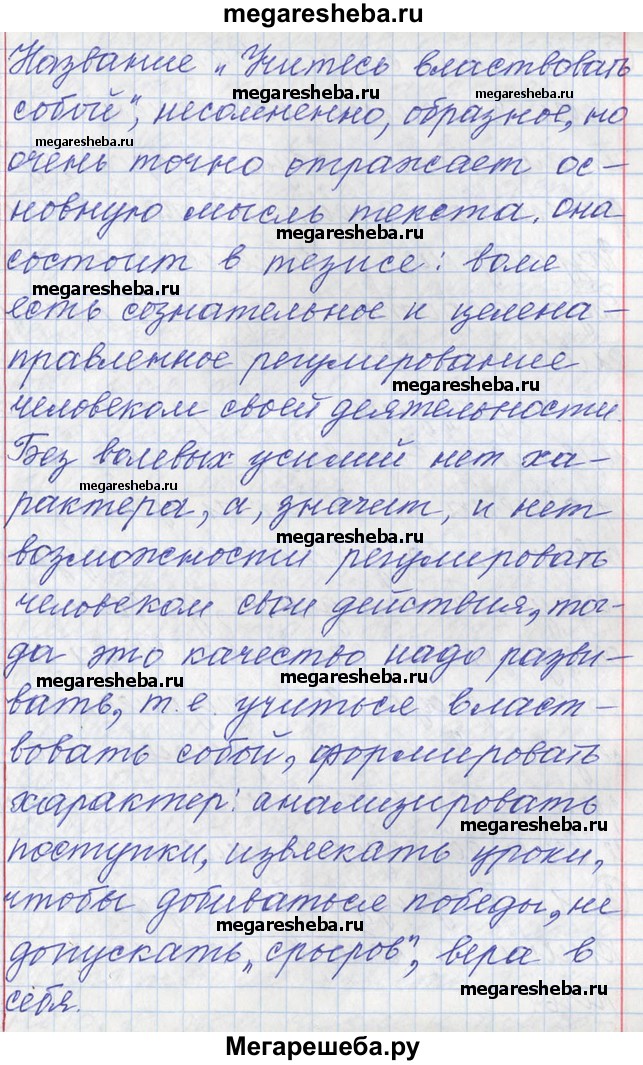 megaresheba.ru
Название „Учитесь властвовать
megaresheba.ru megaresheba.ru
собой", несомненно, образное, но
megaresheba.ru
очень точно отражает ос-
новную мысль текста. Она
megaresheba.ru
состоит в тезисе: воля
megaresheba.ru
есть сознательное и целена-
правленное регулирование
megaresheba.ru
человеком своей деятельности.
Без волевых усилий нет ха-
megaresheba.ru
рактера, а, значит, и нет
megaresheba.ru
возможности регулировать
человеком свои действия, то-
гда это качество надо разви-
megaresheba.ru megaresheba.ru
вать, т.е. учиться власт-
вовать собой, формировать
характер: анализировать
megaresheba.ru
поступки, извлекать уроки,
чтобы добиваться победы, не
megaresheba.ru
допускать „срывов", вера в
megaresheba.ru
себя.
Мегарешеба.ру